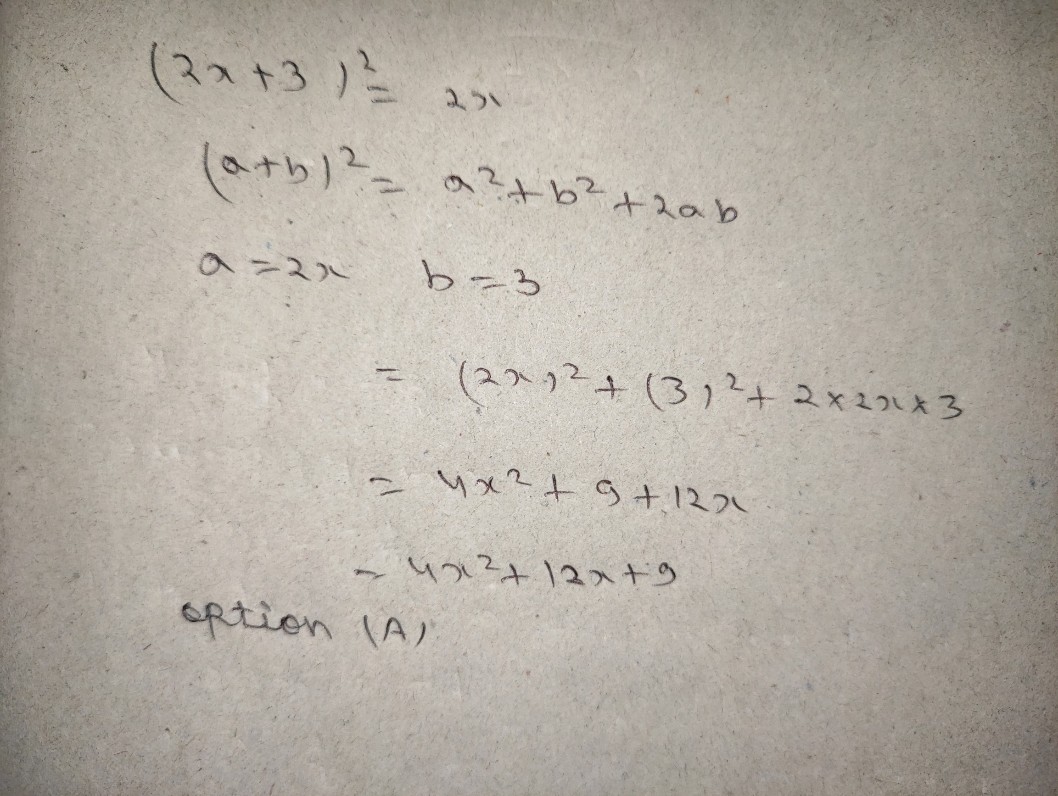 (2x+3)² = 2x
(a+b)² = a²+b²+2ab
a=2x b=3
= (2x)²+(3)²+2×2x×3
= 4x²+9+12x
= 4x²+12x+9
option (A)